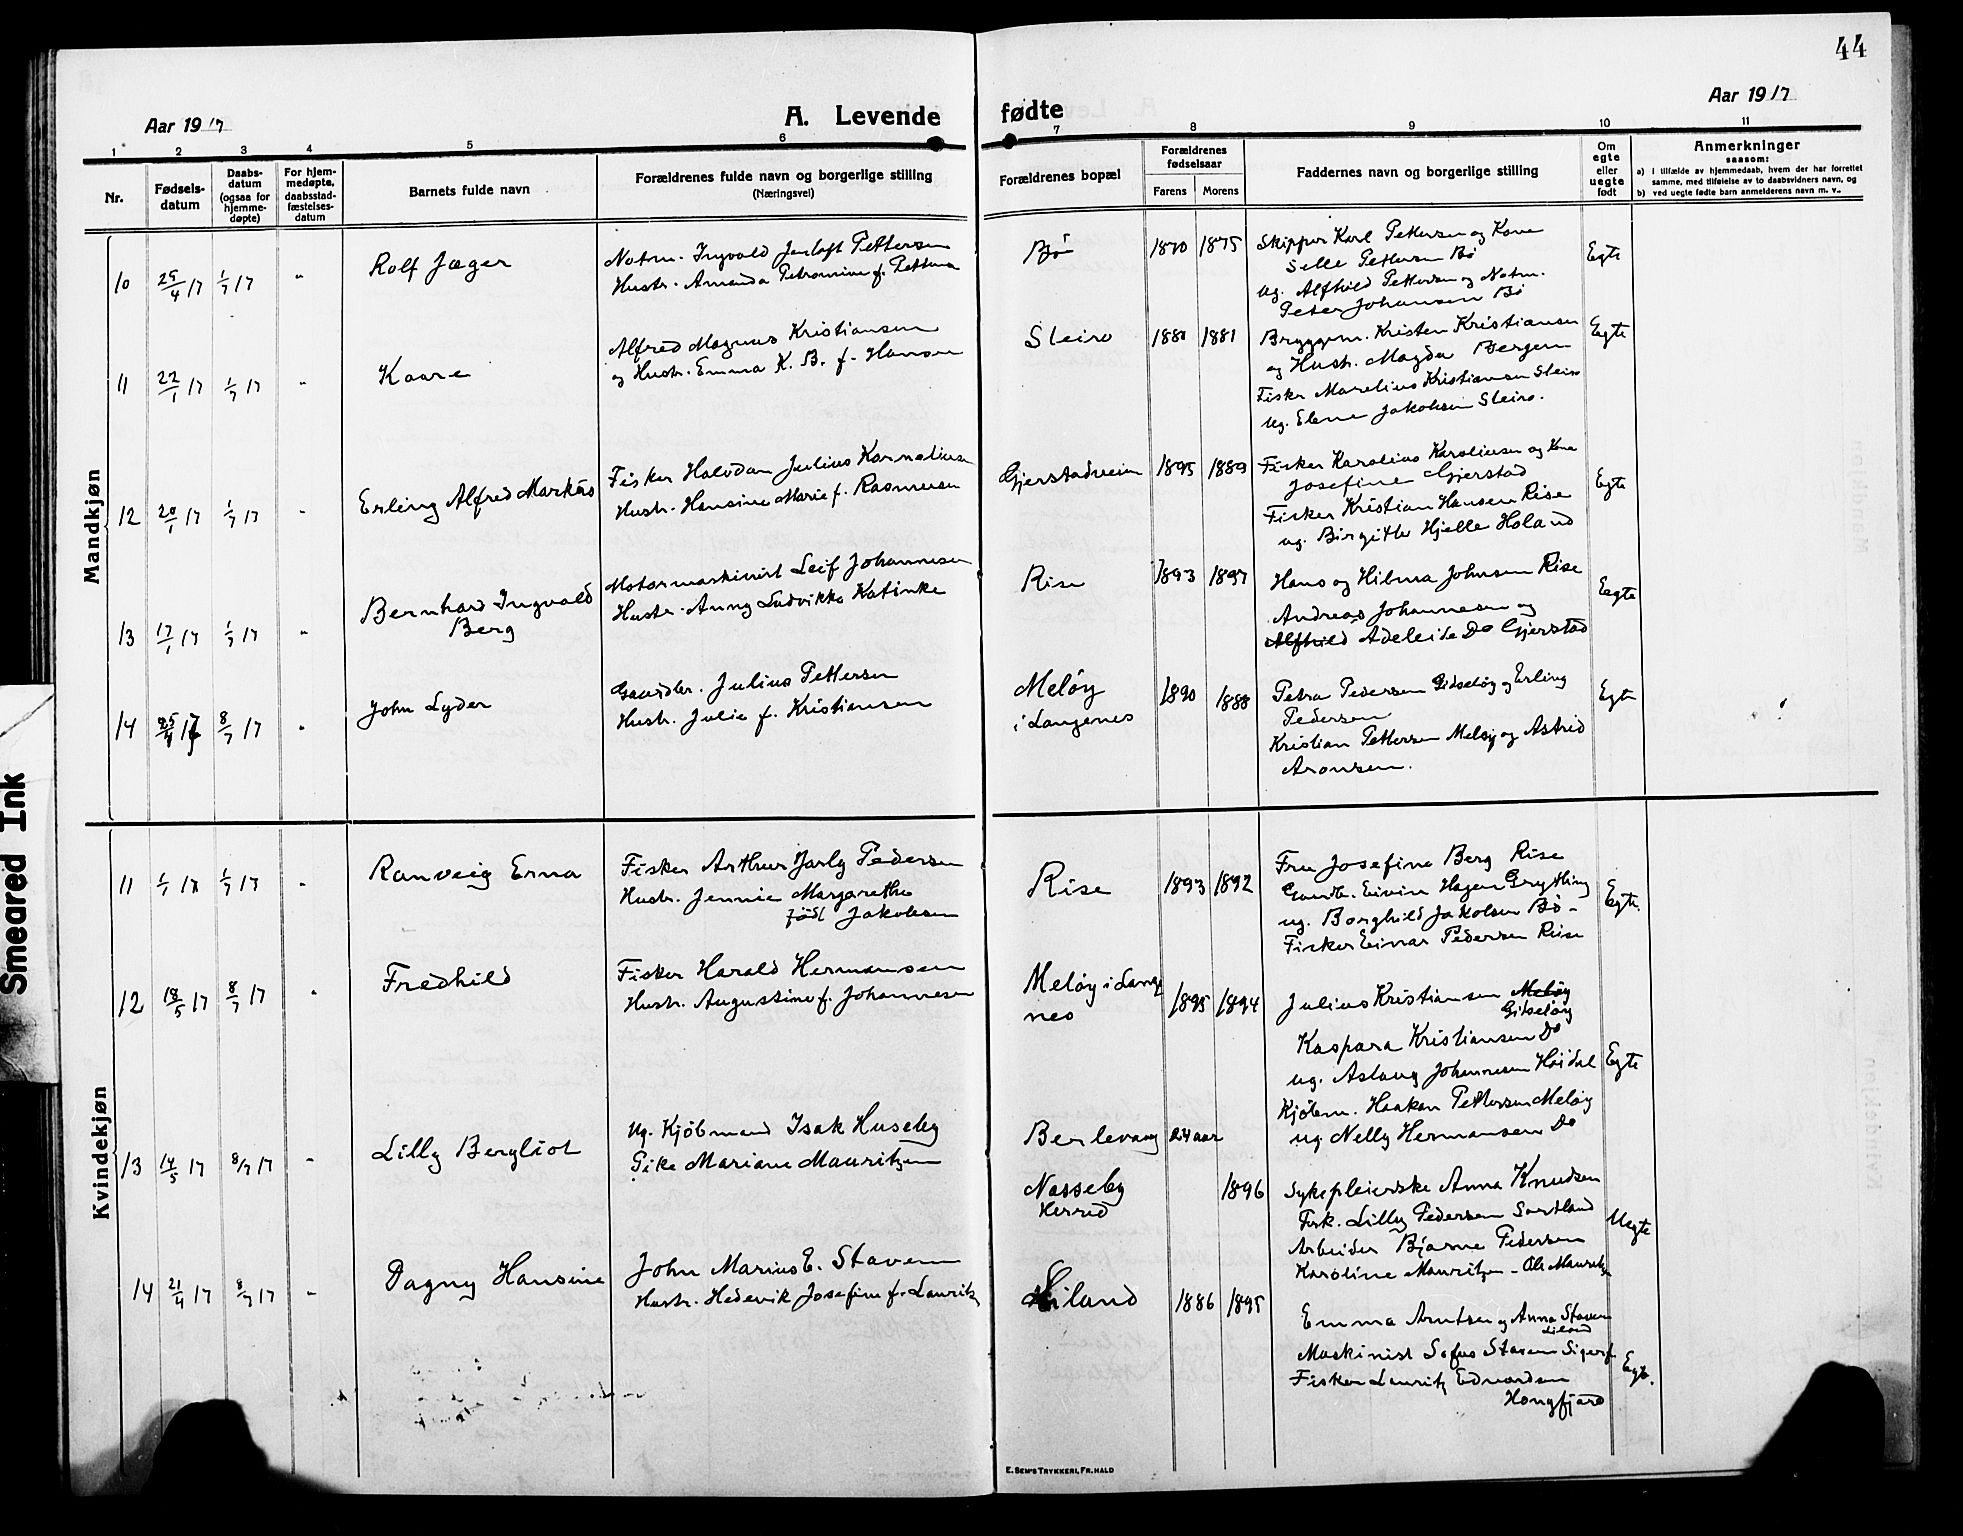 44
Aar 1917
A. Levende
fødte
Aar 1917
1 2 3 4 5 6 7 8 9 10 11
Nr.
Fødsels-
datum
Daabs-
datum
(ogsaa for
hjemme-
døpte)
For hjem-
medøpte,
daabsstad-
fæstelses-
datum
Barnets fulde navn
Forældrenes fulde navn og borgerlige stilling
(Næringsvei)
Forældrenes bopæl
Forældrenes
fødselsaar
Farens Morens
Faddernes navn og borgerlige stilling
Om
egte
eller
uegte
født
Anmerkninger
saasom:
a) I tilfælde av hjemmedaab, hvem der har forrettet
samme, med tilføielse av to daabsvidners navn, og
b) ved uegte fødte barn anmelderens navn m. v..
Mandkjøn
10 29/4 17 1/7 17 "
Rolf Jæger
Notm. Ingvald Pettersen
Hustr. Amanda Petromine f.
Bø
1870 1875
Skipper Karl Pettersen og Kone
Selle Pettersen Bø
ug. Alfhild Pettersen og Notm.
Peter Johansen Bø
Egte
11 22/1 17 1/7 17 "
Kaare
Alfred Magnus Kristiansen
og Hustr. Emma K. B. f. Hansen
Sleiro
1880 1881
Bryggem. Kristen Kristiansen
og Hustr. Magda Bergen
Fisker Marelius Kristiansen Sleiro
ug. Elene Jakobsen Sleiro.
Egte
12 20/1 17 1/7 17 "
Erling Alfred Markus
Fisker Halvdan Julius Kornelius
Hustr. Hansine Marie f. Rasmusen
Gjerstadveien
1895 1889
Fisker Karolius Karoliusen og Kone
Josefine Gjerstad
Fisker Kristian Hansen Rise
ug. Birgithe Hjelle Holand
Egte
13 17/1 17 1/7 17 "
Bernhard Ingvald
Berg
Motormaskinist Leif Johannesen
Hustr. Anny Ludvikke Katinke
Rise
1893 1897
Hans og Hilma Johnsen Rise
Andreas Johannesen og
Alfhild Adeleide Do Gjerstad
Egte
14 25/4 17 8/7 17 "
John Lyder
Gaardbr. Julius Pettersen
Hustr. Julie f. Kristiansen
Meløy
i Langenes
1890 1888
Petra Pedersen Gidseløy og Erling
Pedersen
Kristian Pettersen Meløy og Astrid
Aronsen.
Egte
Kvindekjøn
11 1/1 17 1/7 17 "
Ranveig Erna
Fisker Arthur Jarly Pedersen
Hustr. Jennie Margarethe
født Jakobsen
Rise
1893 1892
Fru Josefine Berg Rise
Gaardb. Eivin Hagen Grytting
ug. Borghild Jakobsen Bø -
Fisker Einar Pedersen Rise
Egte.
12 18/5 17 8/7 17 "
Fredhild
Fisker Harald Hermansen
Hustr. Augustine f. Johannesen
Meløy i Lange
nes
1895 1894
Julius Kristiansen Meløy
Gidseløy
Kaspara Kristiansen Do
ug. Aslaug Johannesen Høidal
Kjøbm. Haakon Pettersen Meløy
ug. Nelly Hermansen Do
Egte
13 14/5 17 8/7 17 "
Lilly Bergliot
Ug. Kjøbmand Isak Huseby
Pike Mariane Mauritzen
Berlevaag 24 aar
Nesseby
Herred
1896
Sykepleierske Anna Knudsen
Frk. Lilly Pedersen Sortland
Arbeider Bjarne Pedersen
Karoline Mauritzen - Ole Mauritzen
Uegte
14 21/4 17 8/7 17 "
Dagny Hansine
John Marius E. Stavem
Hustr. Hedevik Josefine f. Lauritz
Liland
1886 1895
Emma Arntsen og Anna Stavem
Liland
Maskinist Sofus Stavem Sigerf
Fisker Lauritz Edvardsen
Hongfjord
Egte.
E. Sem's Trykkeri, Fr.hald
Smeared Ink